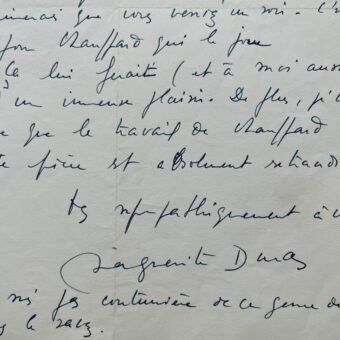 aimerais que vous veniez un soir. C'e
Jean Chauffard qui le joue
Ça lui ferait (et à moi aussi
un immense plaisir. De plus, j'
e que le travail de Chauffard
te pièce est absolument
très sympathiquement à v
Marguerite Duras
suis pas coutumière de ce genre de
s le savez.